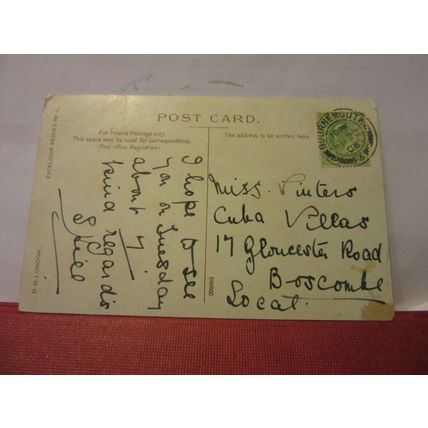 POST CARD.
For Inland Postage only
This space may be used for correspondence
(Post Office Regulation)
The address to be written here.
EXCELSIOR SERIES
B.B. LONDON.
BOURNEMOUTH
I hope to see
you on Tuesday
about 7
kind regards
Miss. Vinters
Cuba Villas
17 Gloucester Road
Boscombe
Local.